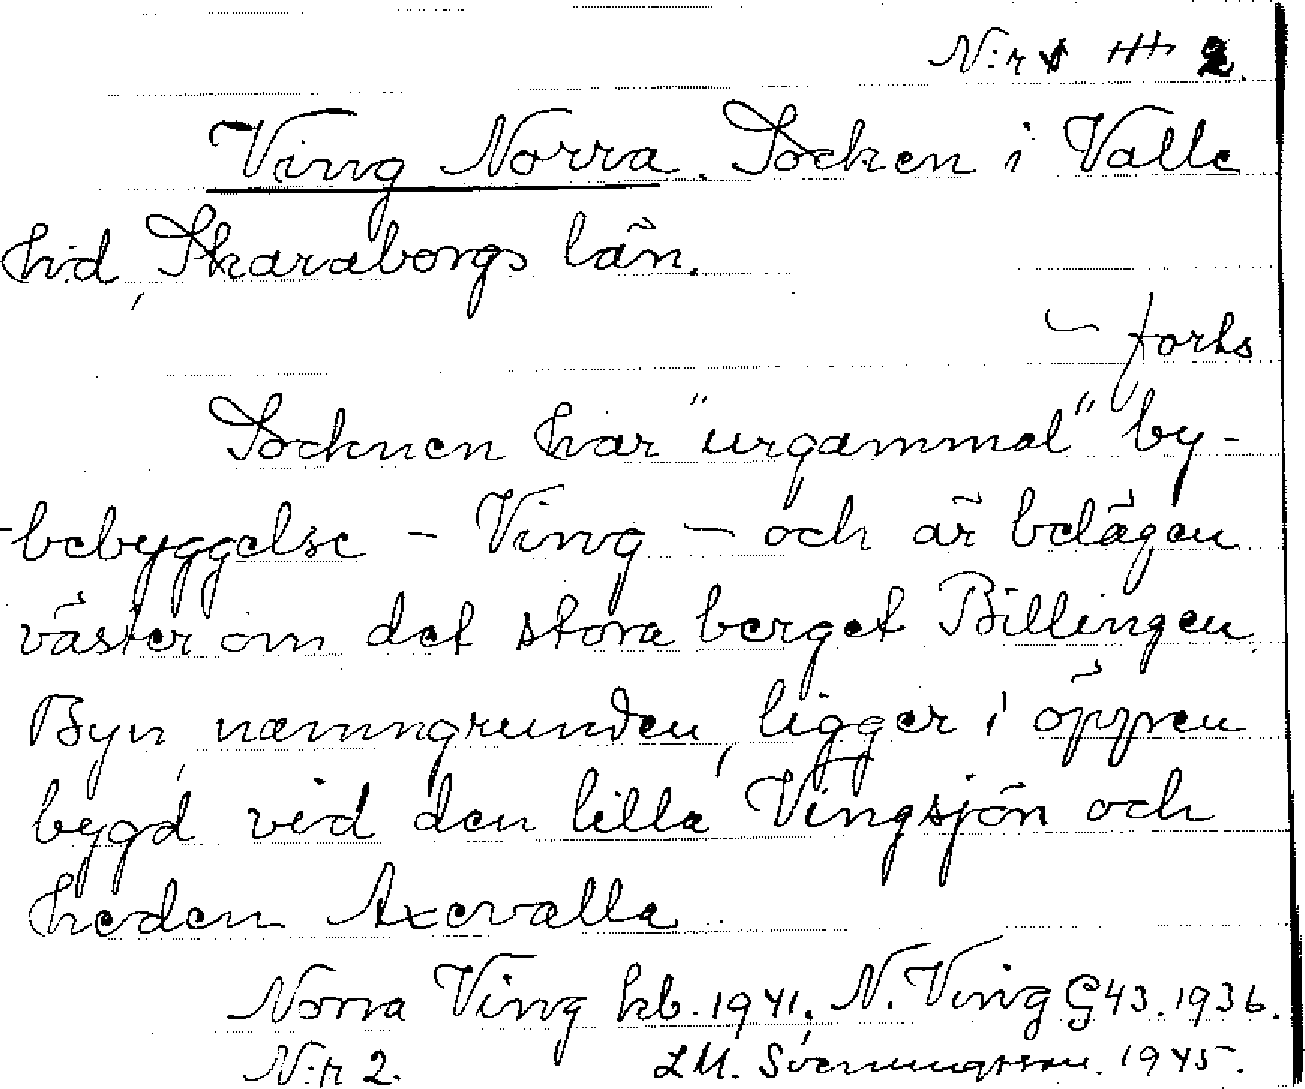 N:r 2.
Ving Norra. Socken i Valle
hd, Skaraborgs län.
– forts
Socknen har "urgammal" by-
-bebyggelse – Ving – och är belägen
väster om det stora berget Billingen.
Byn, namngrunden, ligger i öppen
bygd vid den lilla Vingsjön och
heden Axevalla.
Norra Ving kb. 1941. N. Ving G43. 1936.
N:r 2. LM. Svenungsson. 1945.